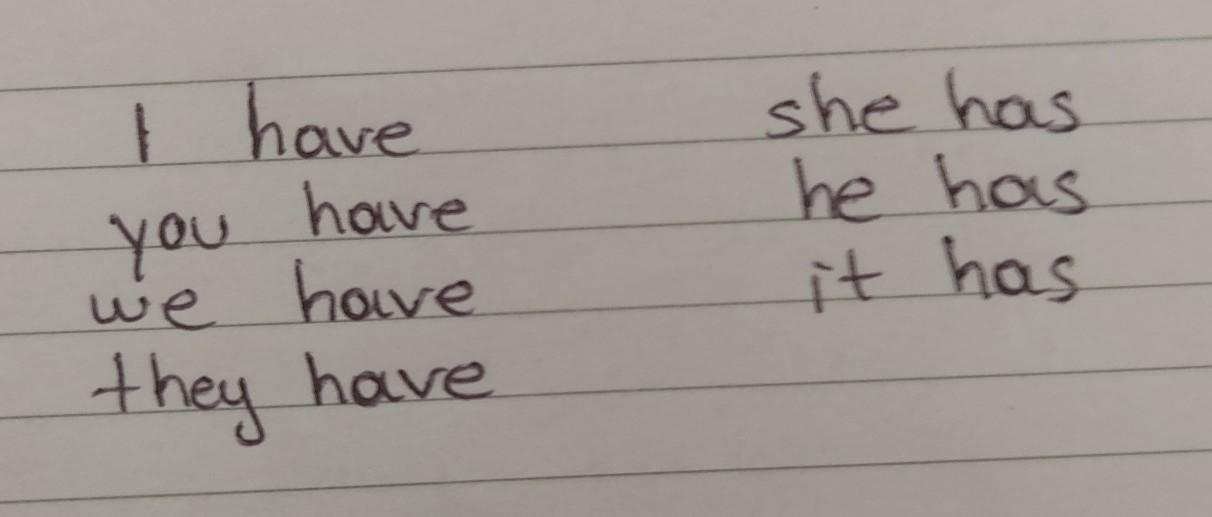 I have
you have
we have
they have
she has
he has
it has